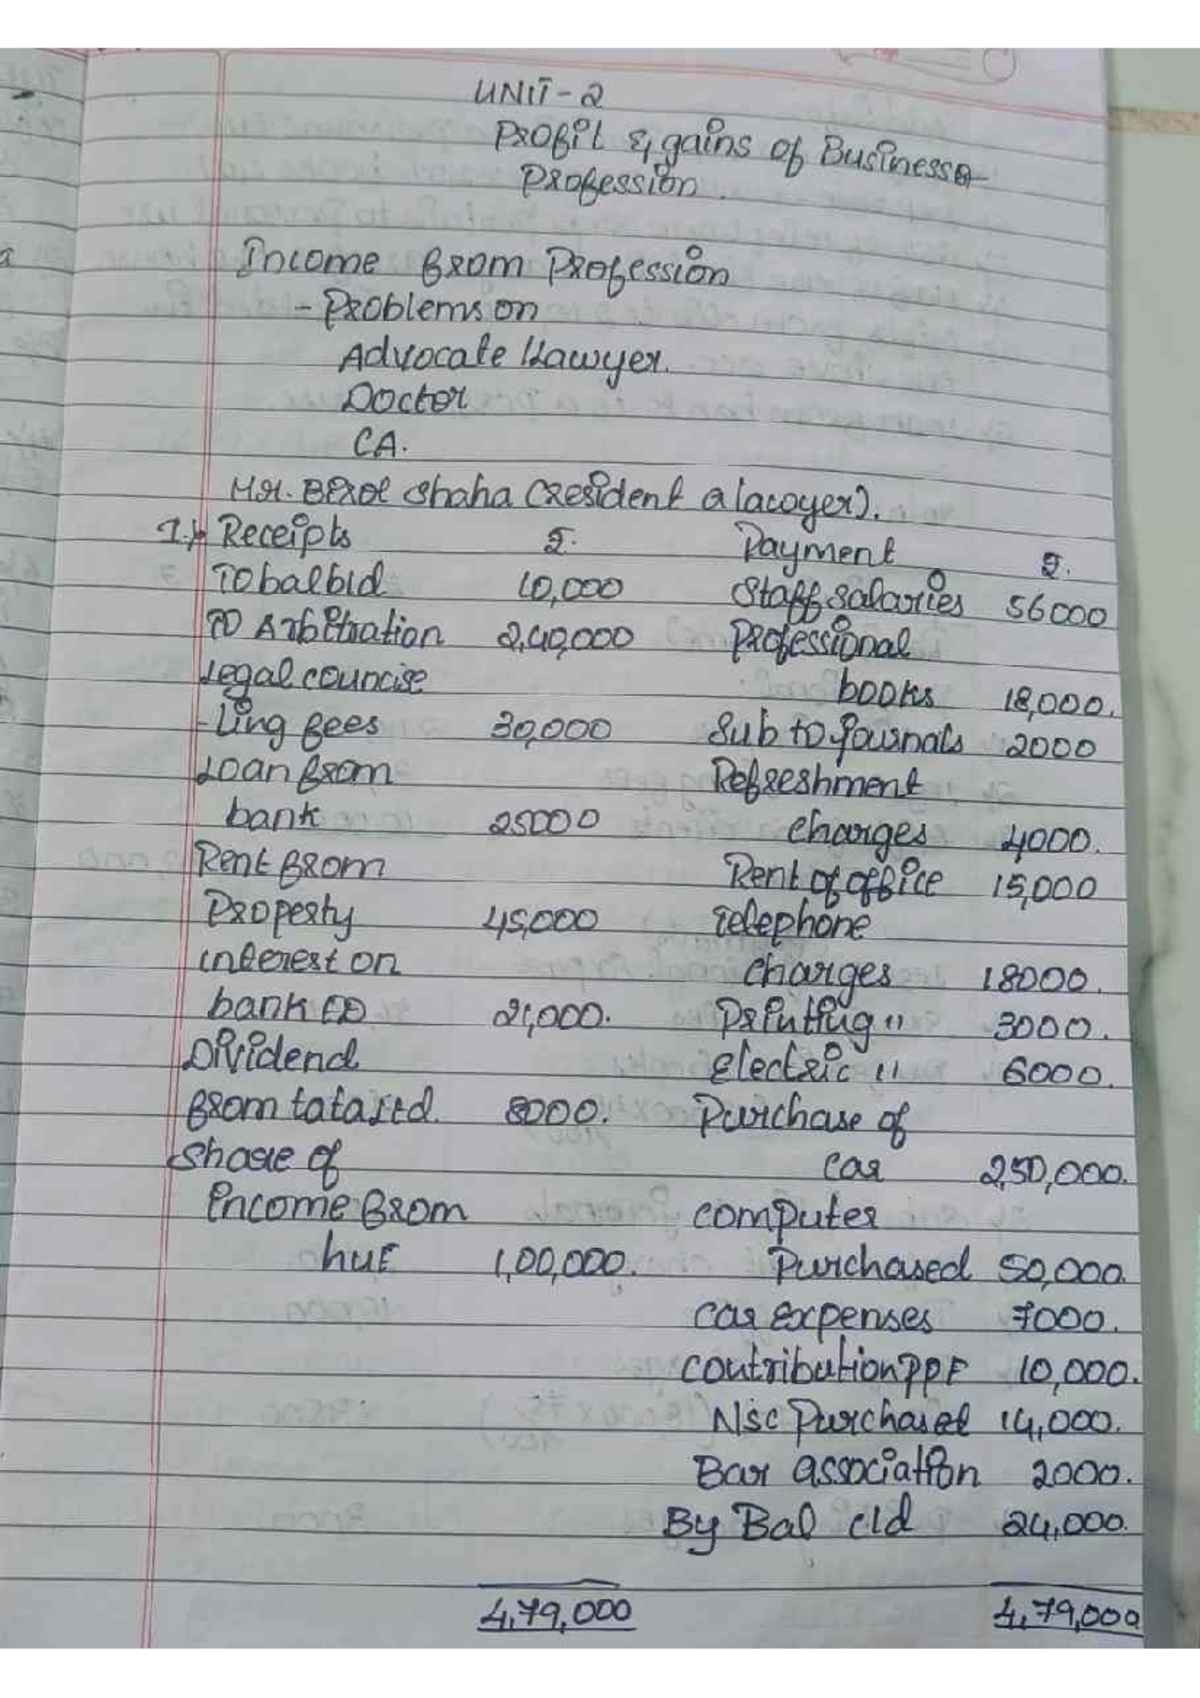 UNIT-2
Profit & gains of Business &
Profession.
Income from Profession
- Problems on
Advocate Lawyer.
Doctor
CA.
Mr. Shaha (resident a lacoyer).
1.) Receipts ₹. Payment ₹.
To bal b/d 10,000 Staff salaries 56000
To Arbitration 2,40,000 Professional
Legal councise books 18,000.
-ling fees 30,000 Sub to Journals 2000
Loan from Refreshment
bank 25000 charges 4000.
Rent from Rent of office 15,000
Property 45,000 Telephone
interest on charges 18000.
bank FD 21,000. Printing " 3000.
Dividend Electric " 6000.
from tata Ltd. 8000. Purchase of
Share of car 2,50,000.
income from computer
huf 1,00,000. Purchased 50,000.
car expenses 7000.
contribution PPF 10,000.
Nsc Purchased 14,000.
Bar association 2000.
By Bal c/d 24,000.
4,79,000 4,79,000